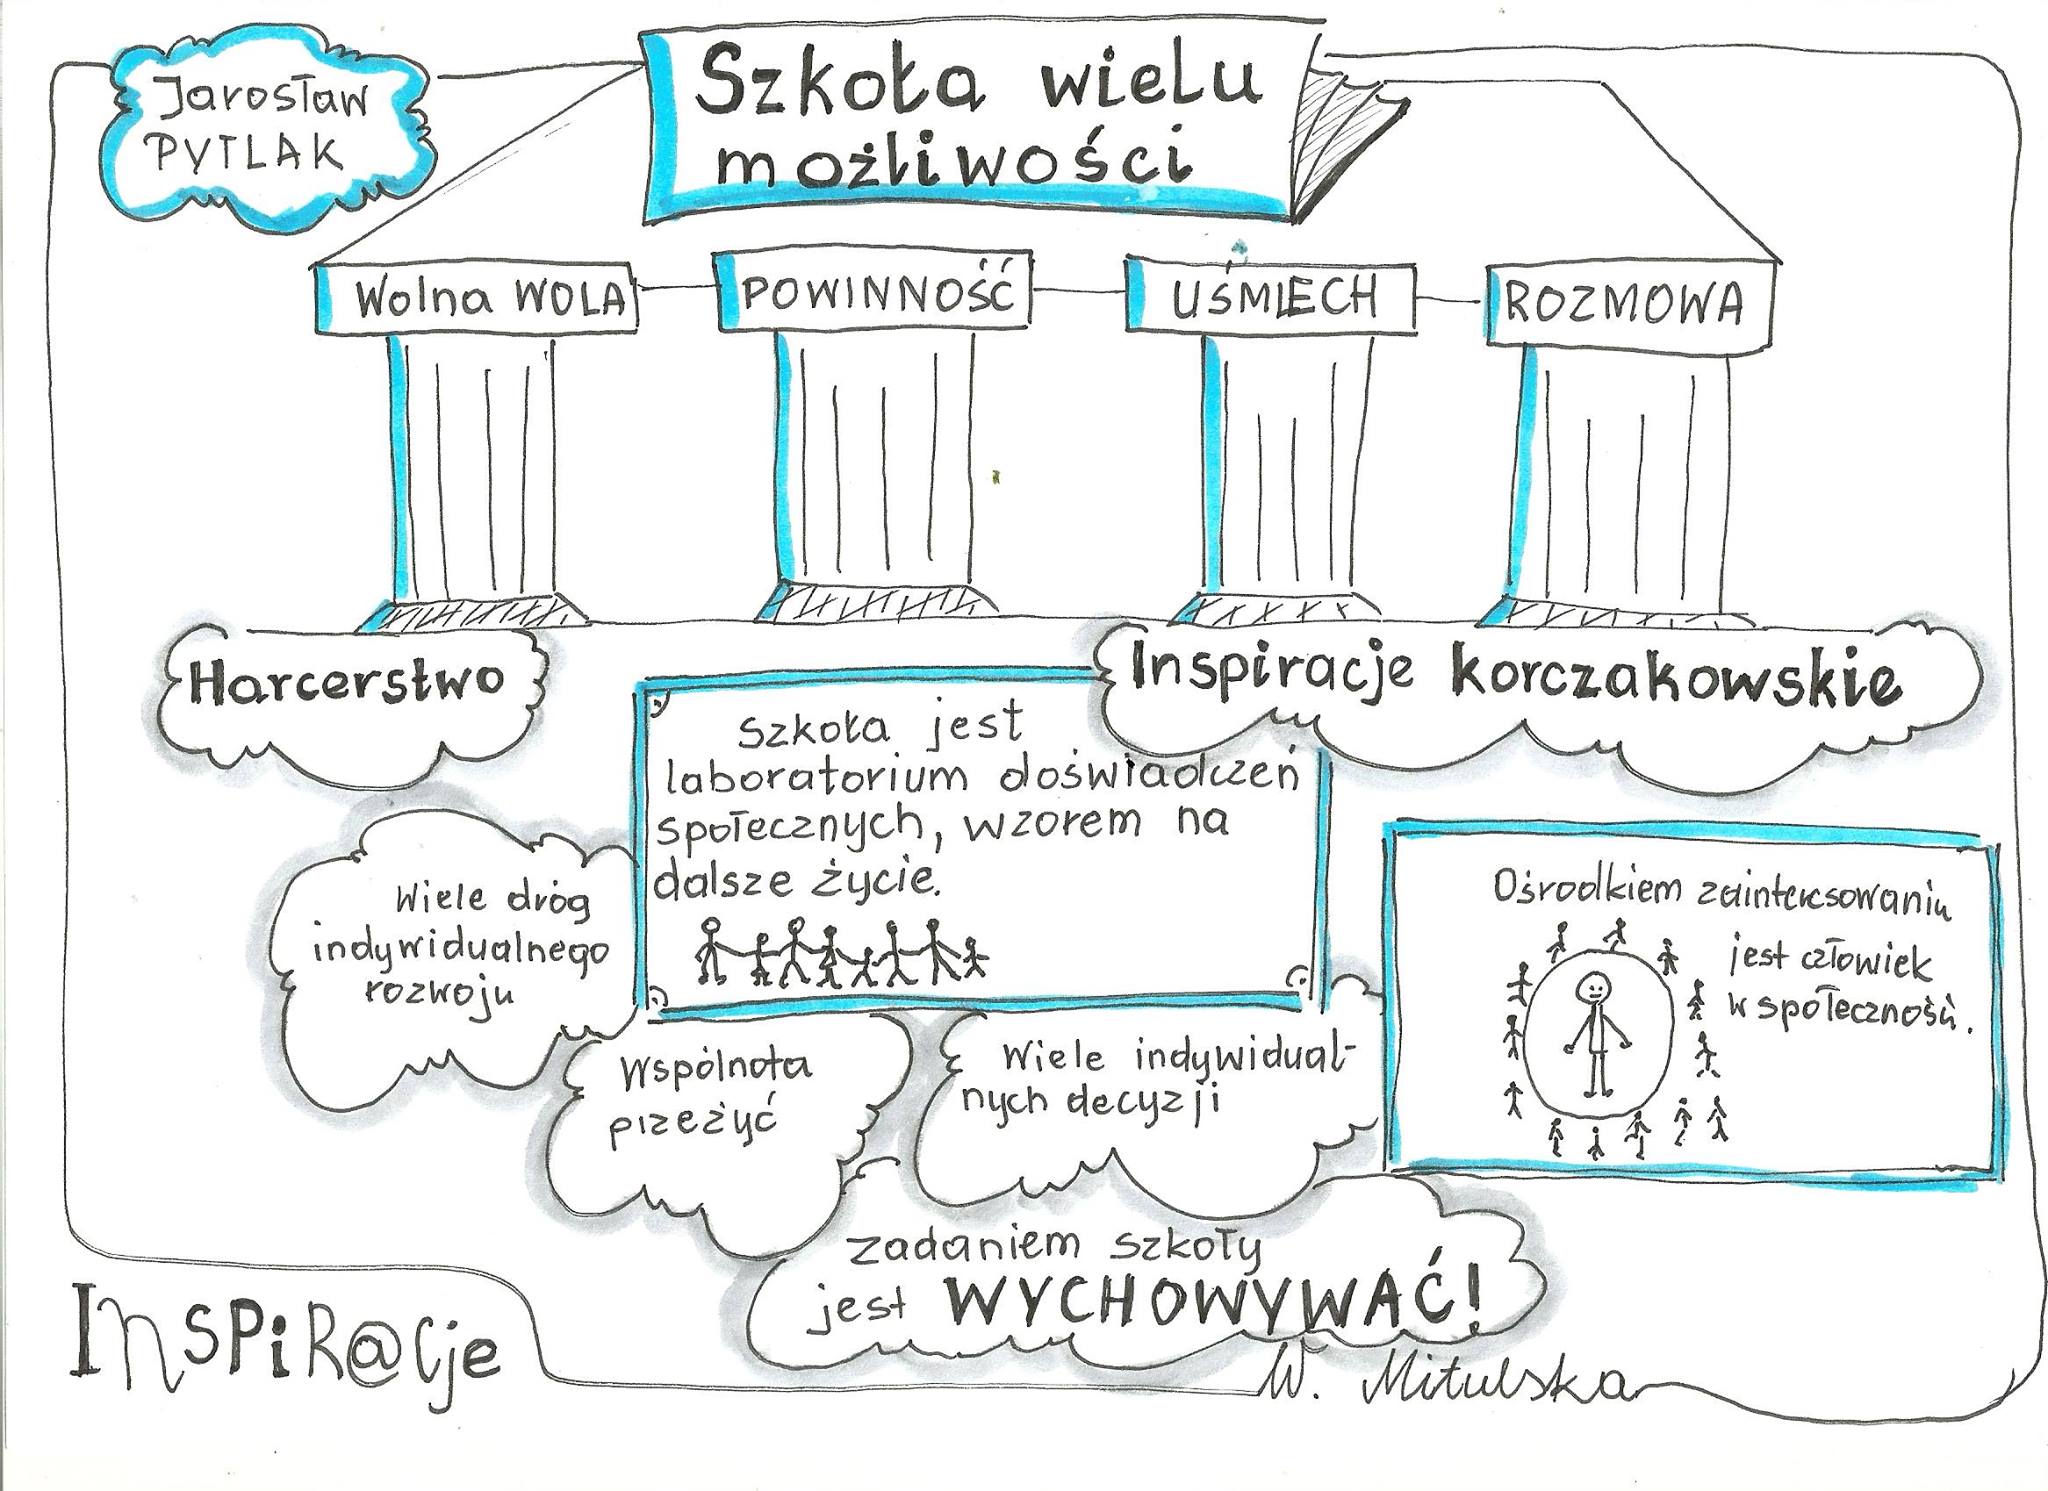 Jarosław
PYTLAK
Szkoła wielu
możliwości
Wolna WOLA
POWINNOŚĆ
UŚMIECH
ROZMOWA
Harcerstwo
Inspiracje korczakowskie
Szkoła jest
laboratorium doświadczeń
społecznych, wzorem na
dalsze życie.
Wiele dróg
indywidualnego
rozwoju
Ośrodkiem zainteresowaniu
jest człowiek
w społeczności.
Wspólnota
przeżyć
Wiele indywidual-
nych decyzji
zadaniem szkoły
jest WYCHOWYWAĆ!
InSPiR@Cje
W. Mitulska